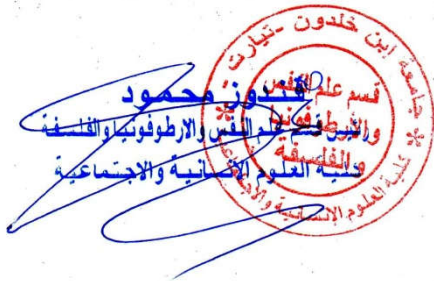 قندوز محمود
رئيس قسم علم النفس والارطوفونيا والفلسفة
كلية العلوم الإنسانية والاجتماعية
جامعة ابن خلدون - تيارت
قسم علم النفس
والأرطوفونيا
والفلسفة
كلية العلوم الإنسانية والاجتماعية